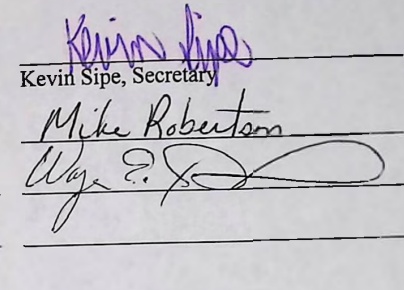 Kevin Sipe
Kevin Sipe, Secretary
Mike Robertson
Wayne E.